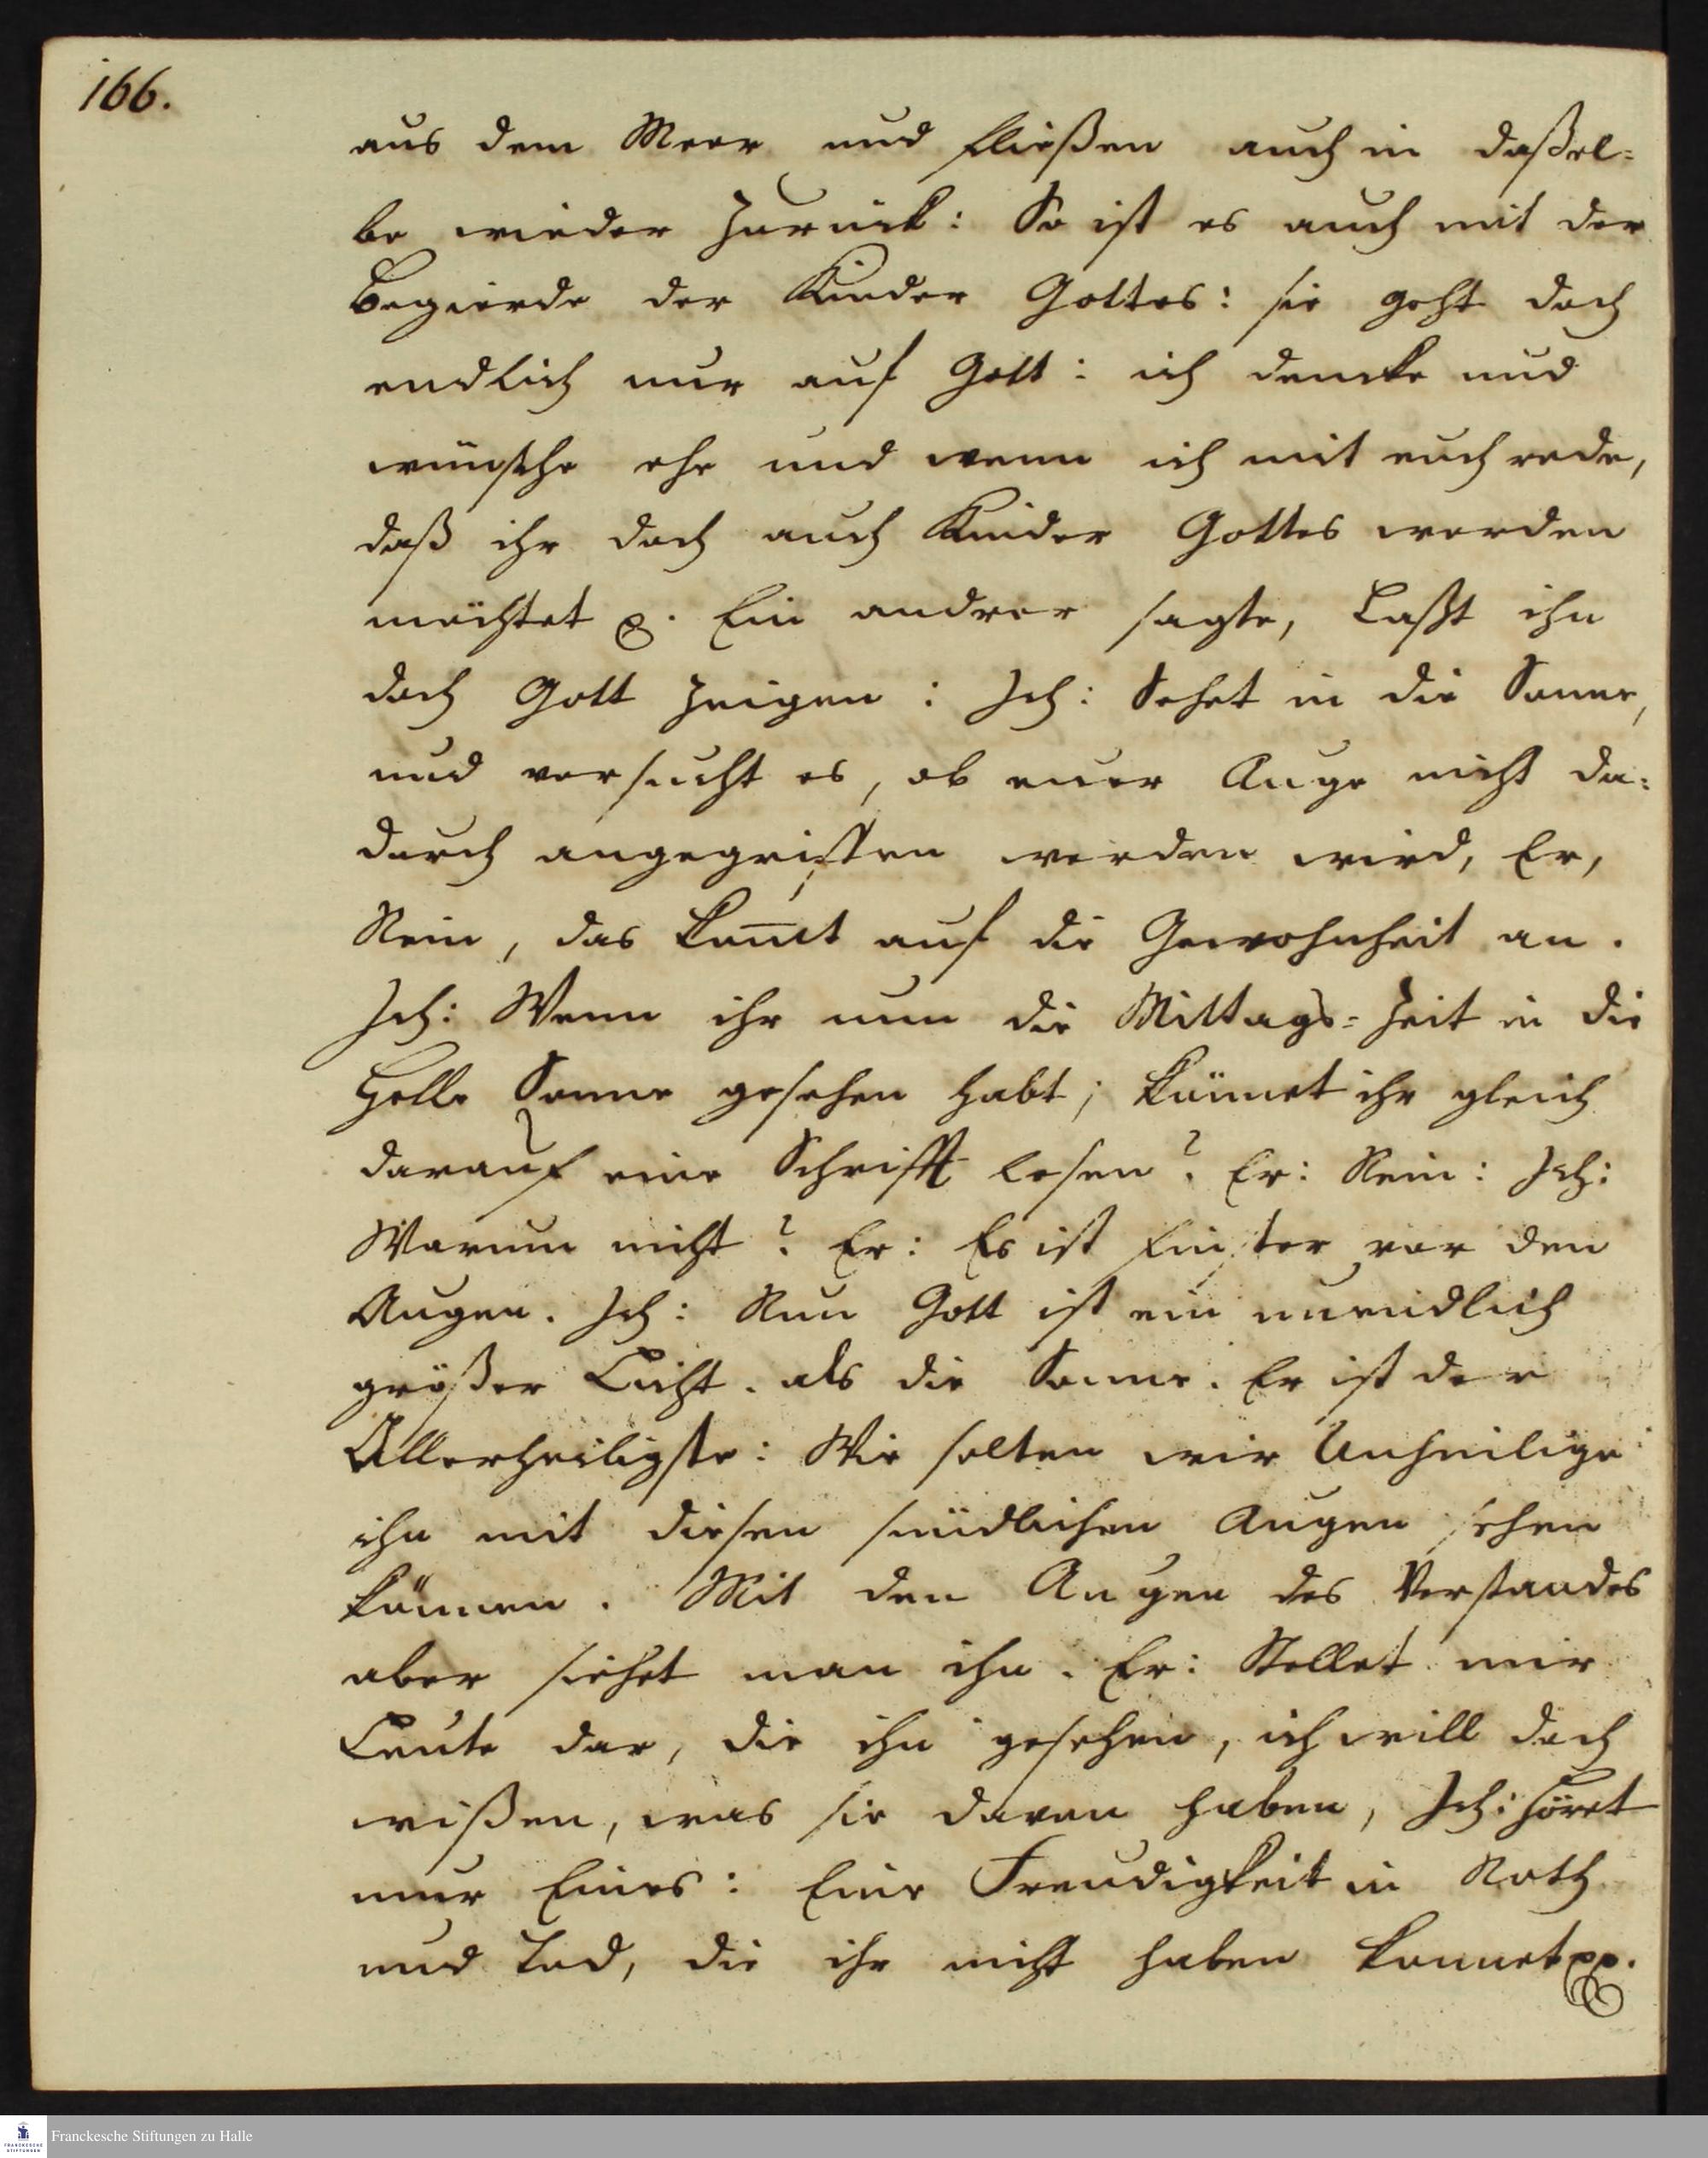 166.
aus dem Meer und fließen auch in daßel=
be wieder zurück: So ist es auch mit der
Begierde der Kinder Gottes: sie geht doch
endlich nur auf Gott: ich dencke und
wünsche ehe und wenn ich mit euch rede,
daß ihr doch auch Kinder Gottes werden
möchtet p. Ein andrer sagte, Laßt ihn
doch Gott zeigen: Ich: Sehet in die Sonne,
und versucht es, ob euer Auge nicht da=
durch angegriffen werden wird, Er,
Nein, das kom̅t auf die Gewohnheit an.
Ich: Wenn ihr nun die Mittags=Zeit in die
Helle Sonne gesehen habt; könnet ihr gleich
darauf eine Schrifft lesen? Er: Nein: Ich:
Warum nicht? Er: Es ist finster vor den
Augen. Ich: Nun Gott ist ein unendlich
größer Licht. als die Sonne. Er ist der
Allerheiligste: Wie solten wir Unheilige
ihn mit diesen sündlichen Augen sehen
können. Mit den Augen des Verstandes
aber siehet man ihn. Er: Stellet mir
Leute dar, die ihn gesehen, ich will doch
wißen, was sie davon haben, Ich: höret
nur Eines: Eine Freudigkeit in Noth
und Tod, die ihr nicht haben konnet pp.
Franckesche Stiftungen zu Halle